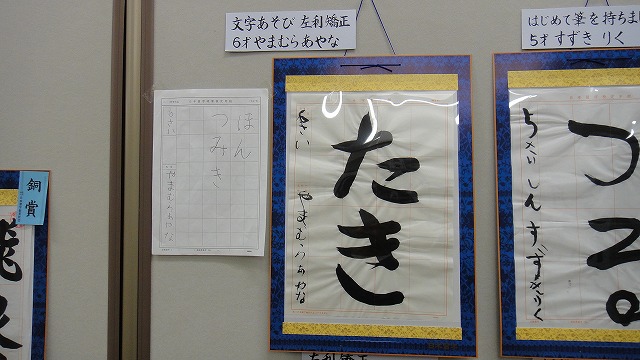 文字あそび 左利矯正
6才やまむらあやな
はじめて筆を持ちま
5才 すずき りく
銅賞
ほん
つみき
6さい
やまむらあやな
たき
6さい やまむらあやな
つ
5さい しんすずきりく
左利矯正